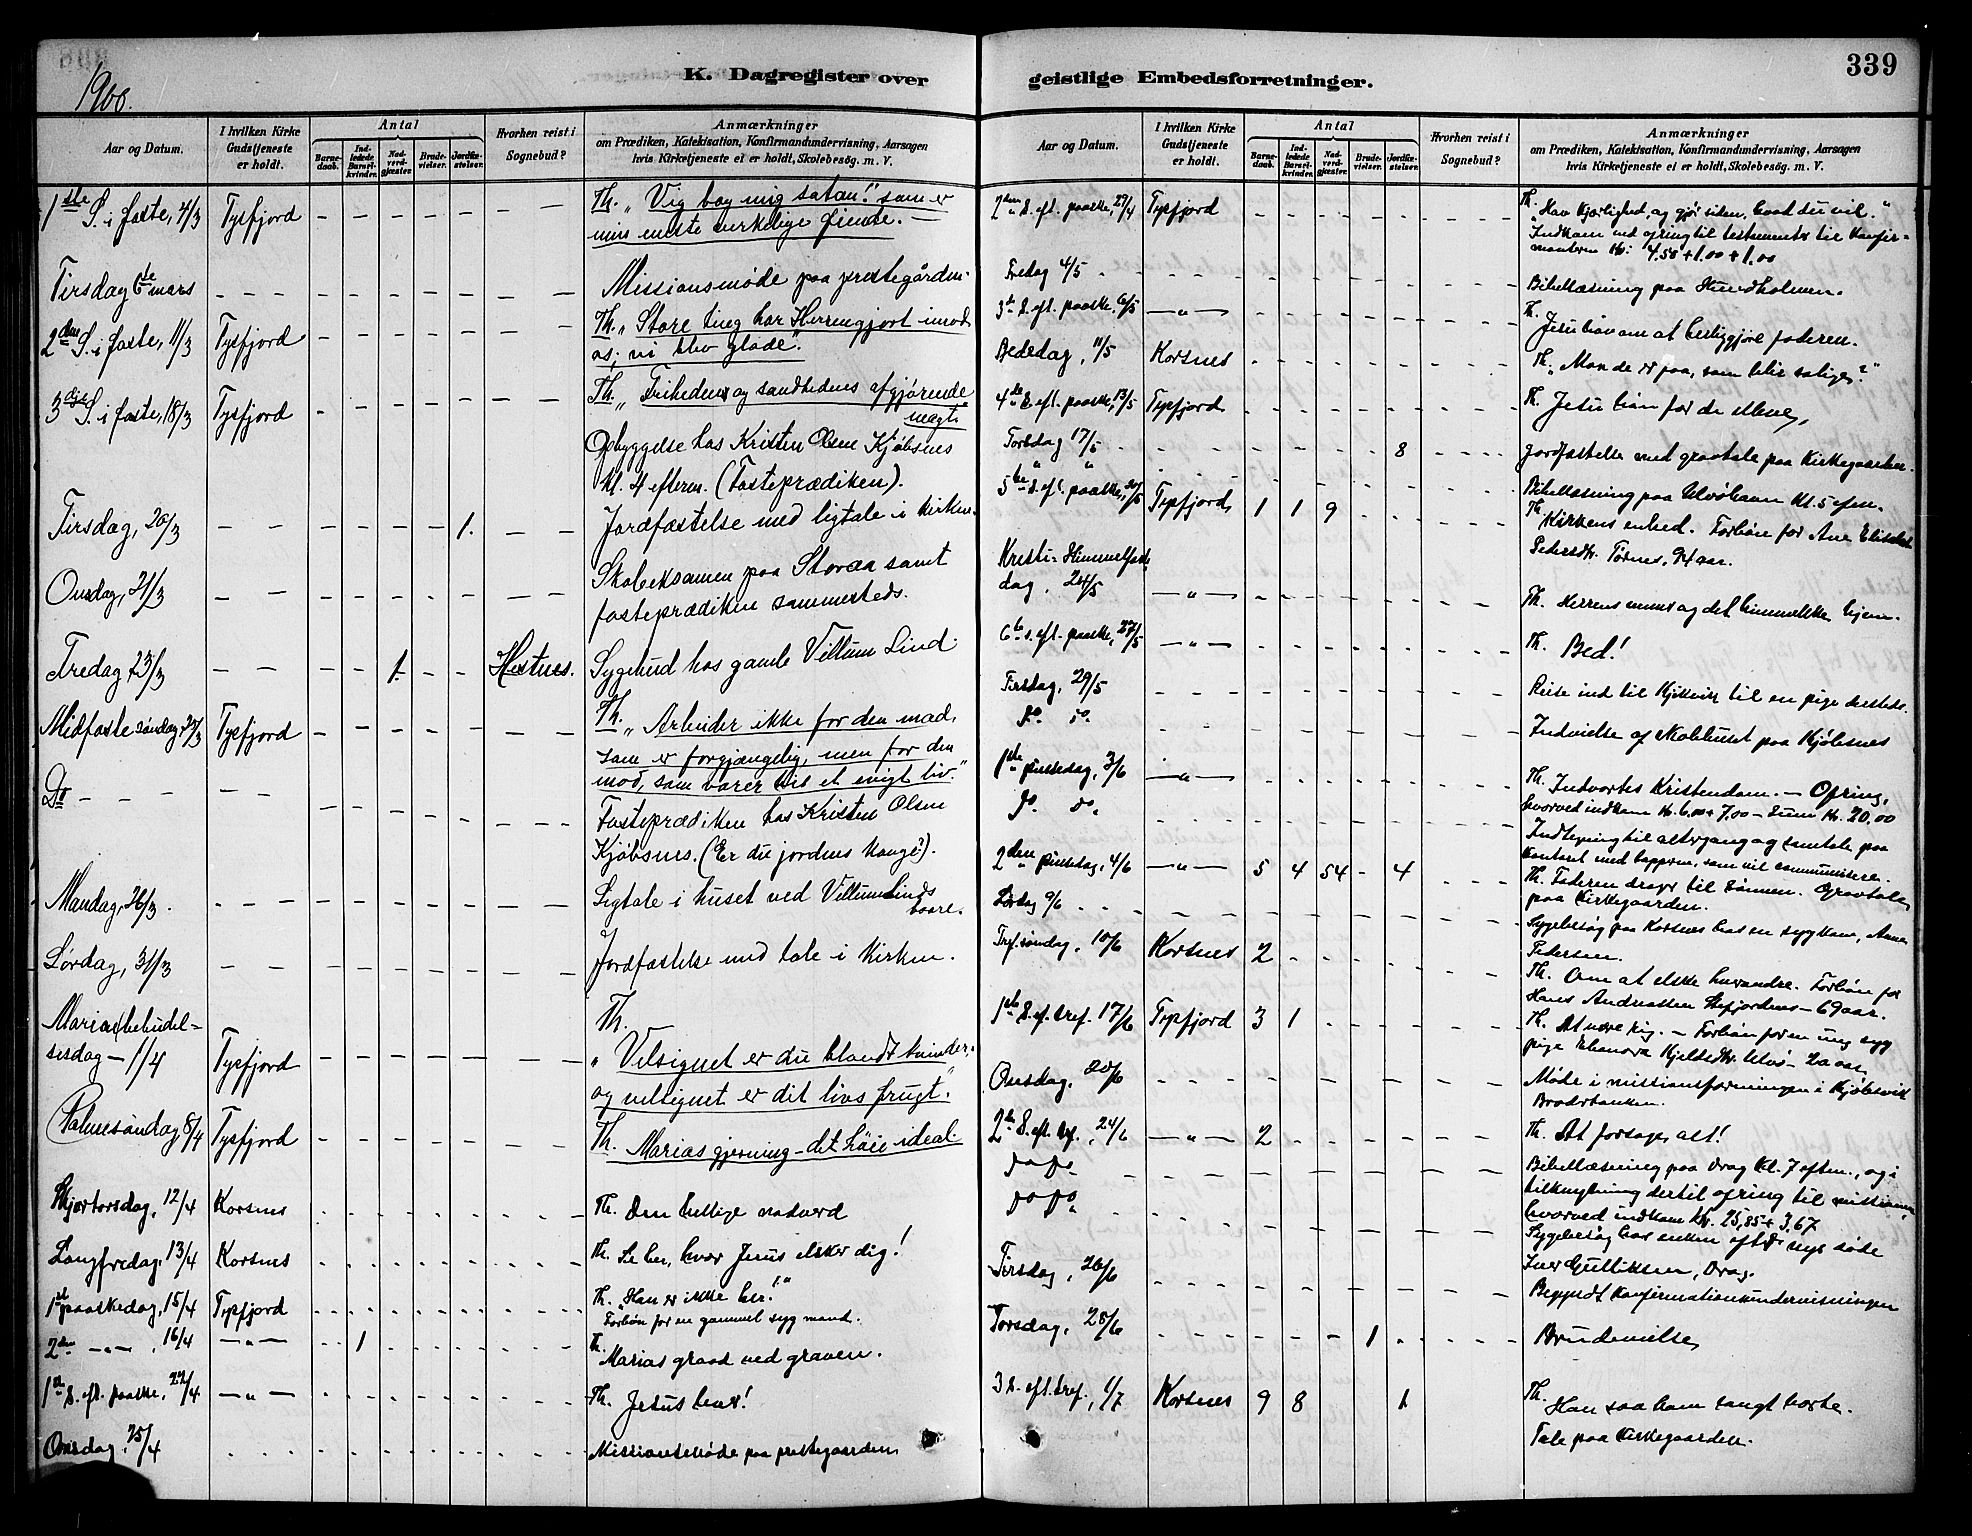 1900.
K. Dagregister over
Aar og Datum.
I hvilken Kirke Gudstjeneste er holdt.
Antal
Barne-daab.
Ind-ledede Barsel-kvinder.
Nad-verd-gjester.
Brude-vielser.
Jordfæ-stelser.
Hvorhen reist i Sognebud?
Anmærkninger
om Prædiken, Katekisation, Konfirmandundervisning, Aarsagen
hvis Kirketjeneste ei er holdt, Skolebesøg. m. V.
1ste S. i faste, 4/3 Tysfjord - - - - - - - Th. "Vig bag mig satan!" som er
min eneste virkelige fiende. -
Tirsdag 6te mars - - - - - - - Missionsmøde paa prestegården.
2den S. i faste, 11/3 Tysfjord - - - - - - - Th. "Store ting har Herren gjort imod
os; vi blev glade".
3dje S. i faste, 18/3 Tysfjord - - - - - - - Th. "Frihedens og sandhedens afgjørende
magt"
Opbyggelse hos Kristen Olsen Kjøbsnes
kl. 4 efterm. (Fasteprædiken).
Tirsdag, 20/3 - - - - - - 1. - - Jordfæstelse med ligtale i kirken.
Onsdag, 21/3 - - - - - - - Skoleeksamen paa Storaa samt
fasteprædiken sammesteds.
Fredag 23/3 - - - - 1. - - Hestnes. Sygebud hos gamle Villum Lind.
Midfaste søndag 25/3 Tysfjord - - - - - - - Th. "Arbeider ikke for den mad,
som er forgjængelig, men for den
mad, som varer til et evigt liv."
Do - - - - - - - Fasteprædiken hos Kristen Olsen
Kjøbsnes. (Er du jordens konge?).
Mandag, 26/3. - - - - - - - Ligtale i huset ved Villum Linds
baare.
Lørdag, 31/3 - - - - - - - Jordfæstelse med tale i kirken.
Mariæ bebudel-
sesdag - 1/4 Tysfjord - - - - - - - Th.
"Velsignet er du blandt kvinder,
og velsignet er dit livs frugt."
Palmesøndag 8/4 Tysfjord - - - - - - - Th. Marias gjerning - det høie ideal.
Skjærtorsdag, 12/4 Korsnes - - - - - - - Th. Den hellige nadverd
Langfredag, 13/4 Korsnes - - - - - - - Th. Se her, hvor Jesus elsker dig!
1st paaskedag, 15/4 Tysfjord - - - - - - - Th. "Han er ikke her!"
Forbøn for en gammel syg mand.
2den -"-, 16/4 -"- - 1 - - - - - Th. Marias graad ved graven.
1st S. eft. paaske, 22/4 -"- - - - - - - - Th. Jesus lever!
Onsdag, 25/4 - - - - - - - Missionsmøde paa prestegaarden
geistlige Embedsforretninger.
339
Aar og Datum.
I hvilken Kirke Gudstjeneste er holdt.
Antal
Barne-daab.
Ind-ledede Barsel-kvinder.
Nad-verd-gjester.
Brude-vielser.
Jordfæ-stelser.
Hvorhen reist i Sognebud?
Anmærkninger
om Prædiken, Katekisation, Konfirmandundervisning, Aarsagen
hvis Kirketjeneste ei er holdt, Skolebesøg. m. V.
2den S. eft. paaske, 29/4 Tysfjord - - - - - - - Th. "Hav kjærlighed, og gjør siden, hvad du vil."
Indkom ved ofring til testamenter til konfir-
manterne Kr: 4,58 + 1.00 + 1.00
Fredag 4/5 - - - - - - - Bibellæsning paa Hundholmen.
3die S. eft. paaske, 6/5 -"- - - - - - - - Th. Jesu bøn om at herliggjøre faderen.
Bededag, 11/5 Korsnes - - - - - - - Th. "Mon de er faa, som blir salige?"
4de S. eft. paaske, 13/5 Tysfjord - - - - - - - Th. Jesu bøn for de elleve,
Torsdag 17/5 - - - - - - 8 - - Jordfæstelse med gravtale paa kirkegaarden.
" " Bibellæsning paa Ulvøhavn kl. 5 efm.
5te S. eft. paaske, 20/5 Tysfjord, 1 1 9 - - - - Th. Kirkens enhed. Forbøn for Ane Elisabet
Pedersdtr. Tørnes, 24 aar.
Kristi Himmelfarts
dag, 24/5 -"- - - - - - - - Th. Herrens navn og det himmelske hjem.
6te S. eft. paaske, 27/5 -"- - - - - - - - Th. Bed!
Tirsdag, 29/5 - - - - - - - Reise ind til Kjikvik til en pige dersteds.
do. do. - - - - - - - Indvielse af skolehuset paa Kjøbsnes
1ste pinsedag, 3/6 -"- - - - - - - - Th. Indvortes Kristendom. - Ofring,
hvorved indkom Kr. 6.00 + 7.00 - Sum Kr. 20,00
do. do. - - - - - - - Indtegning til altergang og samtale paa
kontoret med lapperne, som vil communisere.
2den pinsedag, 4/6 -"- 5 4 54 - 4 - - Th. Faderen drager til sønnen. Gravtale
paa kirkegaarden.
Lørdag 9/6 - - - - - - - Sygebesøg paa Korsnes hos en syg kone, Anne
Pedersen.
Tref. søndag, 10/6 Korsnes 2 - - - - - - Th. Om at elske hverandre. Forbøn for
Hans Andreassen Stefjordnes - 69 aar.
1ste S. ef. tref. 17/6 Tysfjord 3 1 - - - - - Th. At være rig. - Forbøn for en ung syg
pige Elenora Kjelsdtr. Ulvø - 20 aar.
Onsdag, 20/6 - - - - - - - Møde i missionsforeningen i Kjøbsvik
Broderbanken.
2den S. eft. tref., 24/6 -"- 2 - - - - - - Th. At forsage, alt!
do do - - - - - - - Bibellæsning paa Drag kl. 7 eftm., og i
tilknytning dertil ofring til missionen,
do do. - - - - - - - hvorved indkom Kr. 25,85 + 3.67
Sygebesøg hos enken efter nys døde
Iver Gulliksen, Drag.
Tirsdag, 26/6 - - - - - - - Begyndt konfirmationsundervisningen
Torsdag, 28/6 - - - - - 1 - - - Brudevielse
3 S. eft. tref., 1/7 Korsnes 9 8 - - 1 - - Th. Han saa ham langt borte.
Tale paa kirkegaarden.